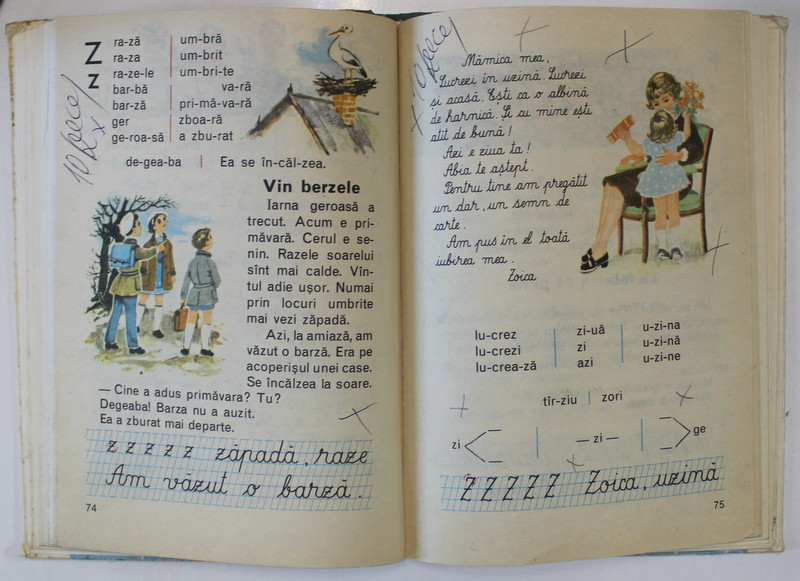 Z
z
ra-ză
ra-za
ra-ze-le
bar-bă
bar-ză
ger
ge-roa-să
um-bră
um-brit
um-bri-te
va-ră
pri-mă-va-ră
zboa-ră
a zbu-rat
de-gea-ba | Ea se în-căl-zea.
Vin berzele
Iarna geroasă a
trecut. Acum e pri-
măvară. Cerul e se-
nin. Razele soarelui
sînt mai calde. Vîn-
tul adie ușor. Numai
prin locuri umbrite
mai vezi zăpadă.
Azi, la amiază, am
văzut o barză. Era pe
acoperișul unei case.
Se încălzea la soare.
— Cine a adus primăvara? Tu?
Degeaba! Barza nu a auzit.
Ea a zburat mai departe.
z z z z z zăpadă, raze
Am văzut o barză.
74
Mămica mea,
Lucrezi în uzină. Lucrezi
și acasă. Ești ca o albină
de harnică. Și cu mine ești
atît de bună!
Azi e ziua ta!
Abia te aștept.
Pentru tine am pregătit
un dar, un semn de
carte.
Am pus în el toată
iubirea mea.
Zoica
lu-crez
lu-crezi
lu-crea-ză
zi-uă
zi
azi
u-zi-na
u-zi-nă
u-zi-ne
tîr-ziu | zori
zi — — zi — — ge
Z Z Z Z Z Zoica, uzină
75